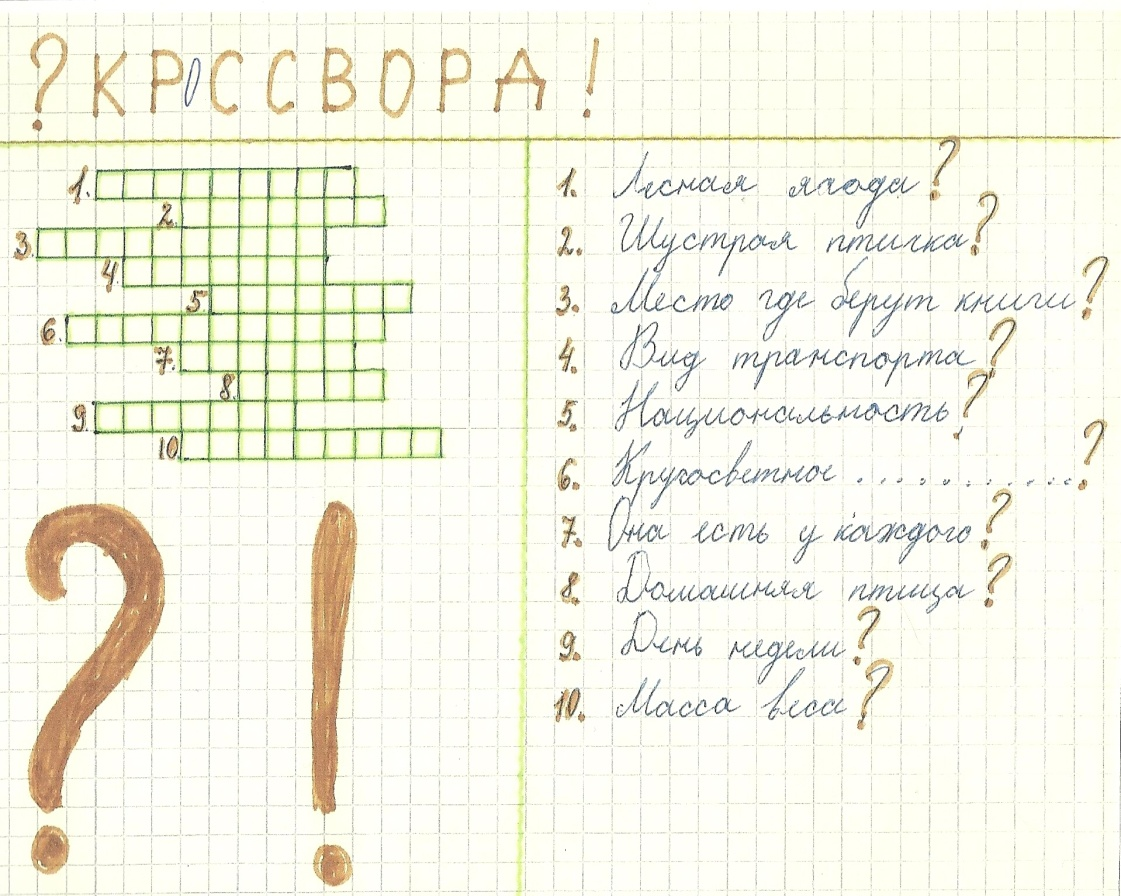 ?КРОССВОРД!
1.
2.
3.
4.
5.
6.
7.
8.
9.
10.
1. Лесная ягода?
2. Шустрая птичка?
3. Место где берут книги?
4. Вид транспорта?
5. Национальность?
6. Кругосветное ............?
7. Она есть у каждого?
8. Домашняя птица?
9. День недели?
10. Масса веса?
? !